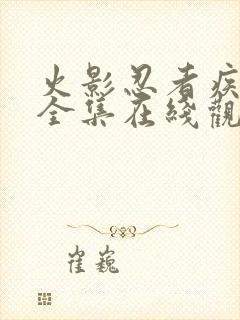 火影忍者疾
全集在綫觀
崔巍